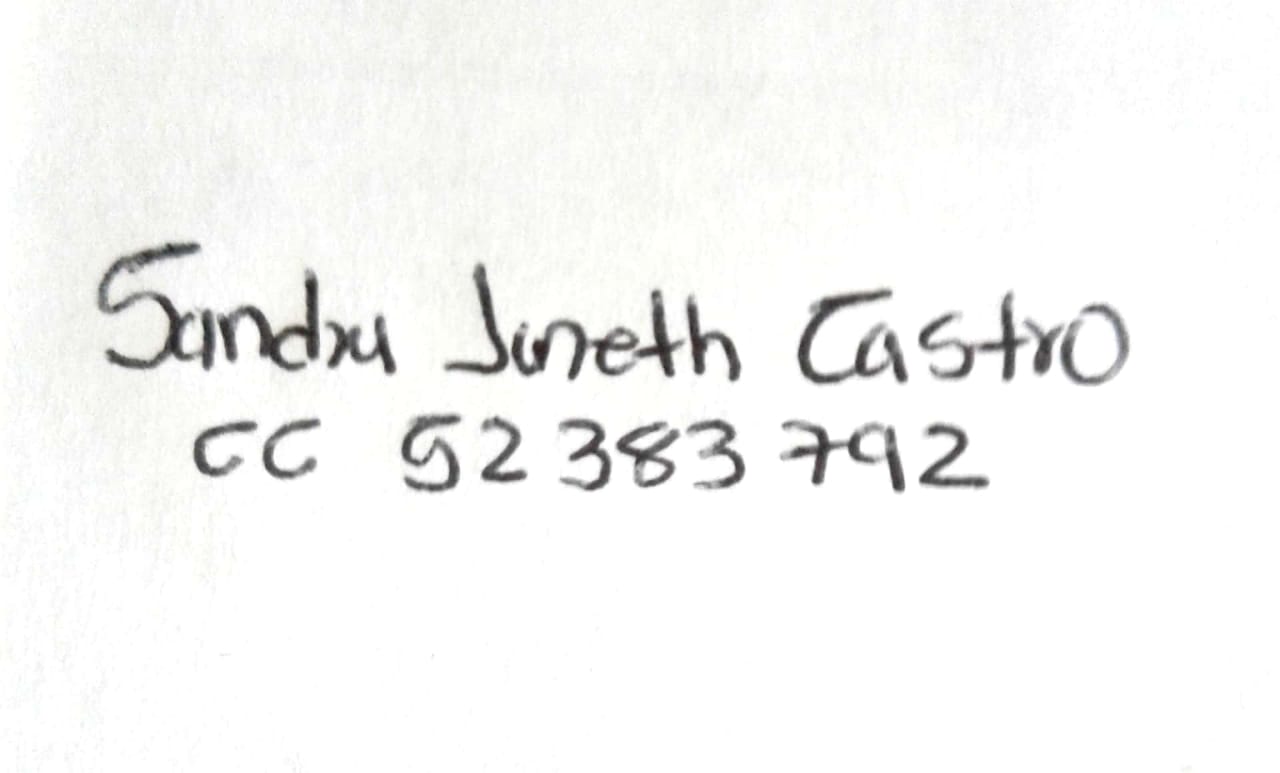 Sandra Janeth Castro
CC 52 383 792